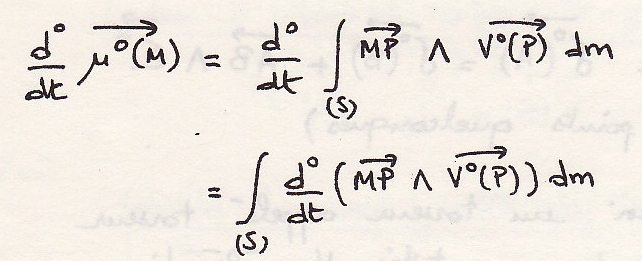 d°/dt μ°(M)→ = d°/dt ∫(S) MP→ ∧ V°(P)→ dm
= ∫(S) d°/dt (MP→ ∧ V°(P)→) dm